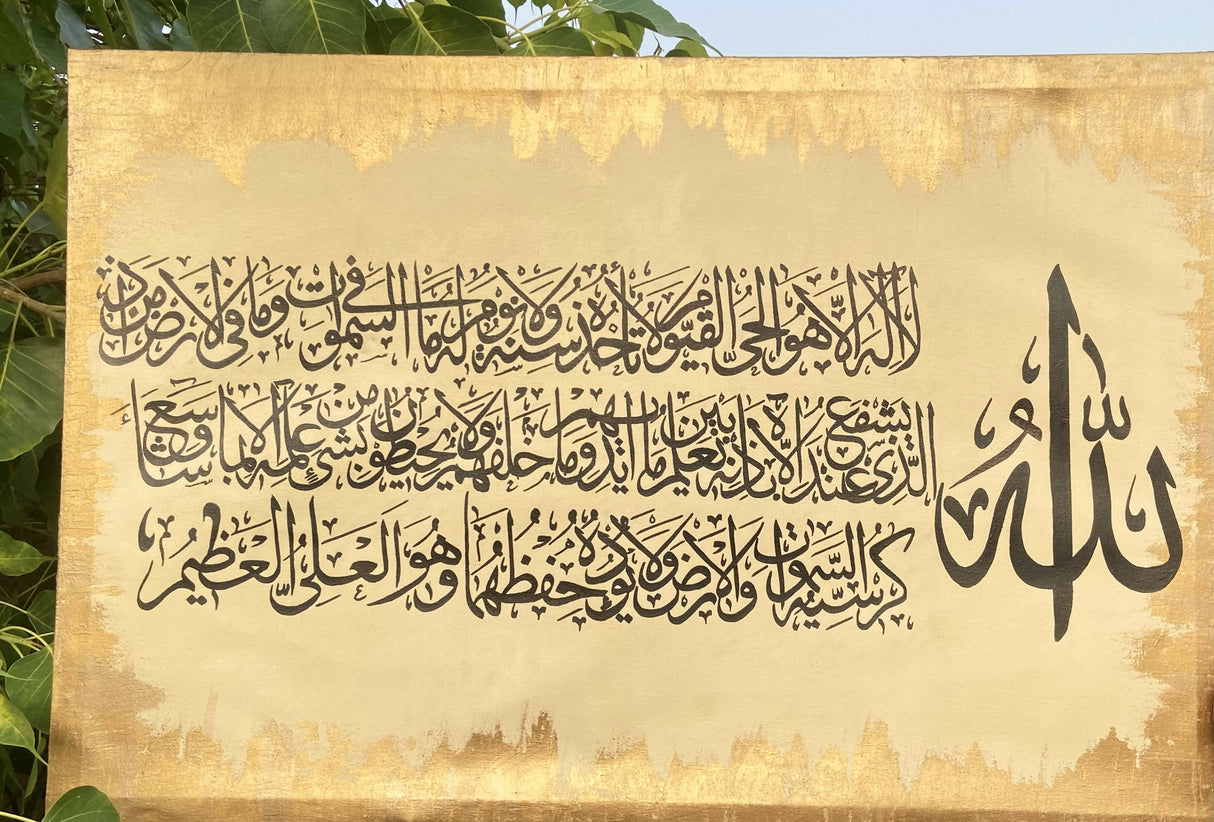 الله
لا اله الا هو الحي القيوم لا تأخذه سنة ولا نوم له ما في السموت وما في الارض من ذ
الذي يشفع عنده الا باذنه يعلم ما بين ايديهم وما خلفهم ولا يحيطون بشيء من علمه الا بما شاء وسع
كرسيه السموت والارض ولا يوده حفظهما وهو العلي العظيم